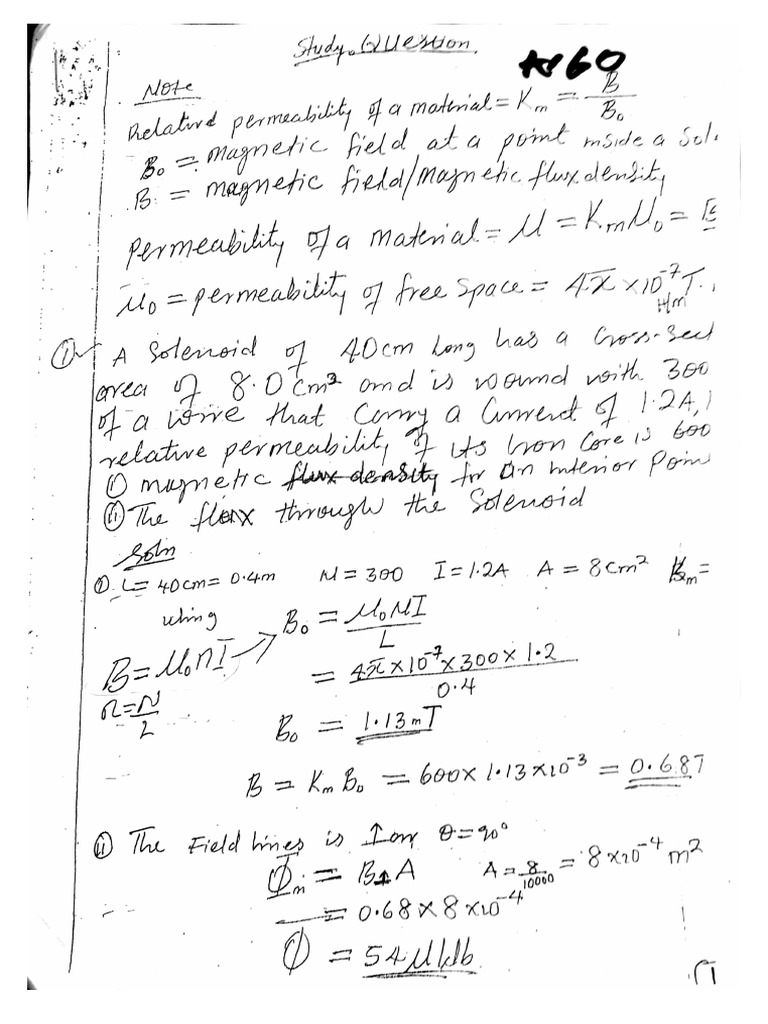 Study Question
₦60
Note
Relative permeability of a material = Km = B/B₀
B₀ = magnetic field at a point inside a Sol.
B = magnetic field/magnetic flux density
Permeability of a material = μ = Kmμ₀ =
μ₀ = permeability of free space = 4π × 10⁻⁷ T.
H/m
① A Solenoid of 40cm long has a Cross-Sect
area of 8.0cm² and is wound with 300
of a wire that carry a Current of 1.2A,
relative permeability of its Iron Core is 600
(i) magnetic flux density for an Interior Poin
(ii) The flux through the Solenoid
Soln
(i) L = 40cm = 0.4m N = 300 I = 1.2A A = 8cm² Km =
using B₀ = μ₀NI/L
B = μ₀nI
= 4π × 10⁻⁷ × 300 × 1.2 / 0.4
n = N/L
B₀ = 1.13mT
B = KmB₀ = 600 × 1.13 × 10⁻³ = 0.68T
(ii) The Field lines is ⊥ or θ = 90°
Φm = B⊥A A = 8/10000 = 8 × 10⁻⁴ m²
= 0.68 × 8 × 10⁻⁴
Φ = 54μWb